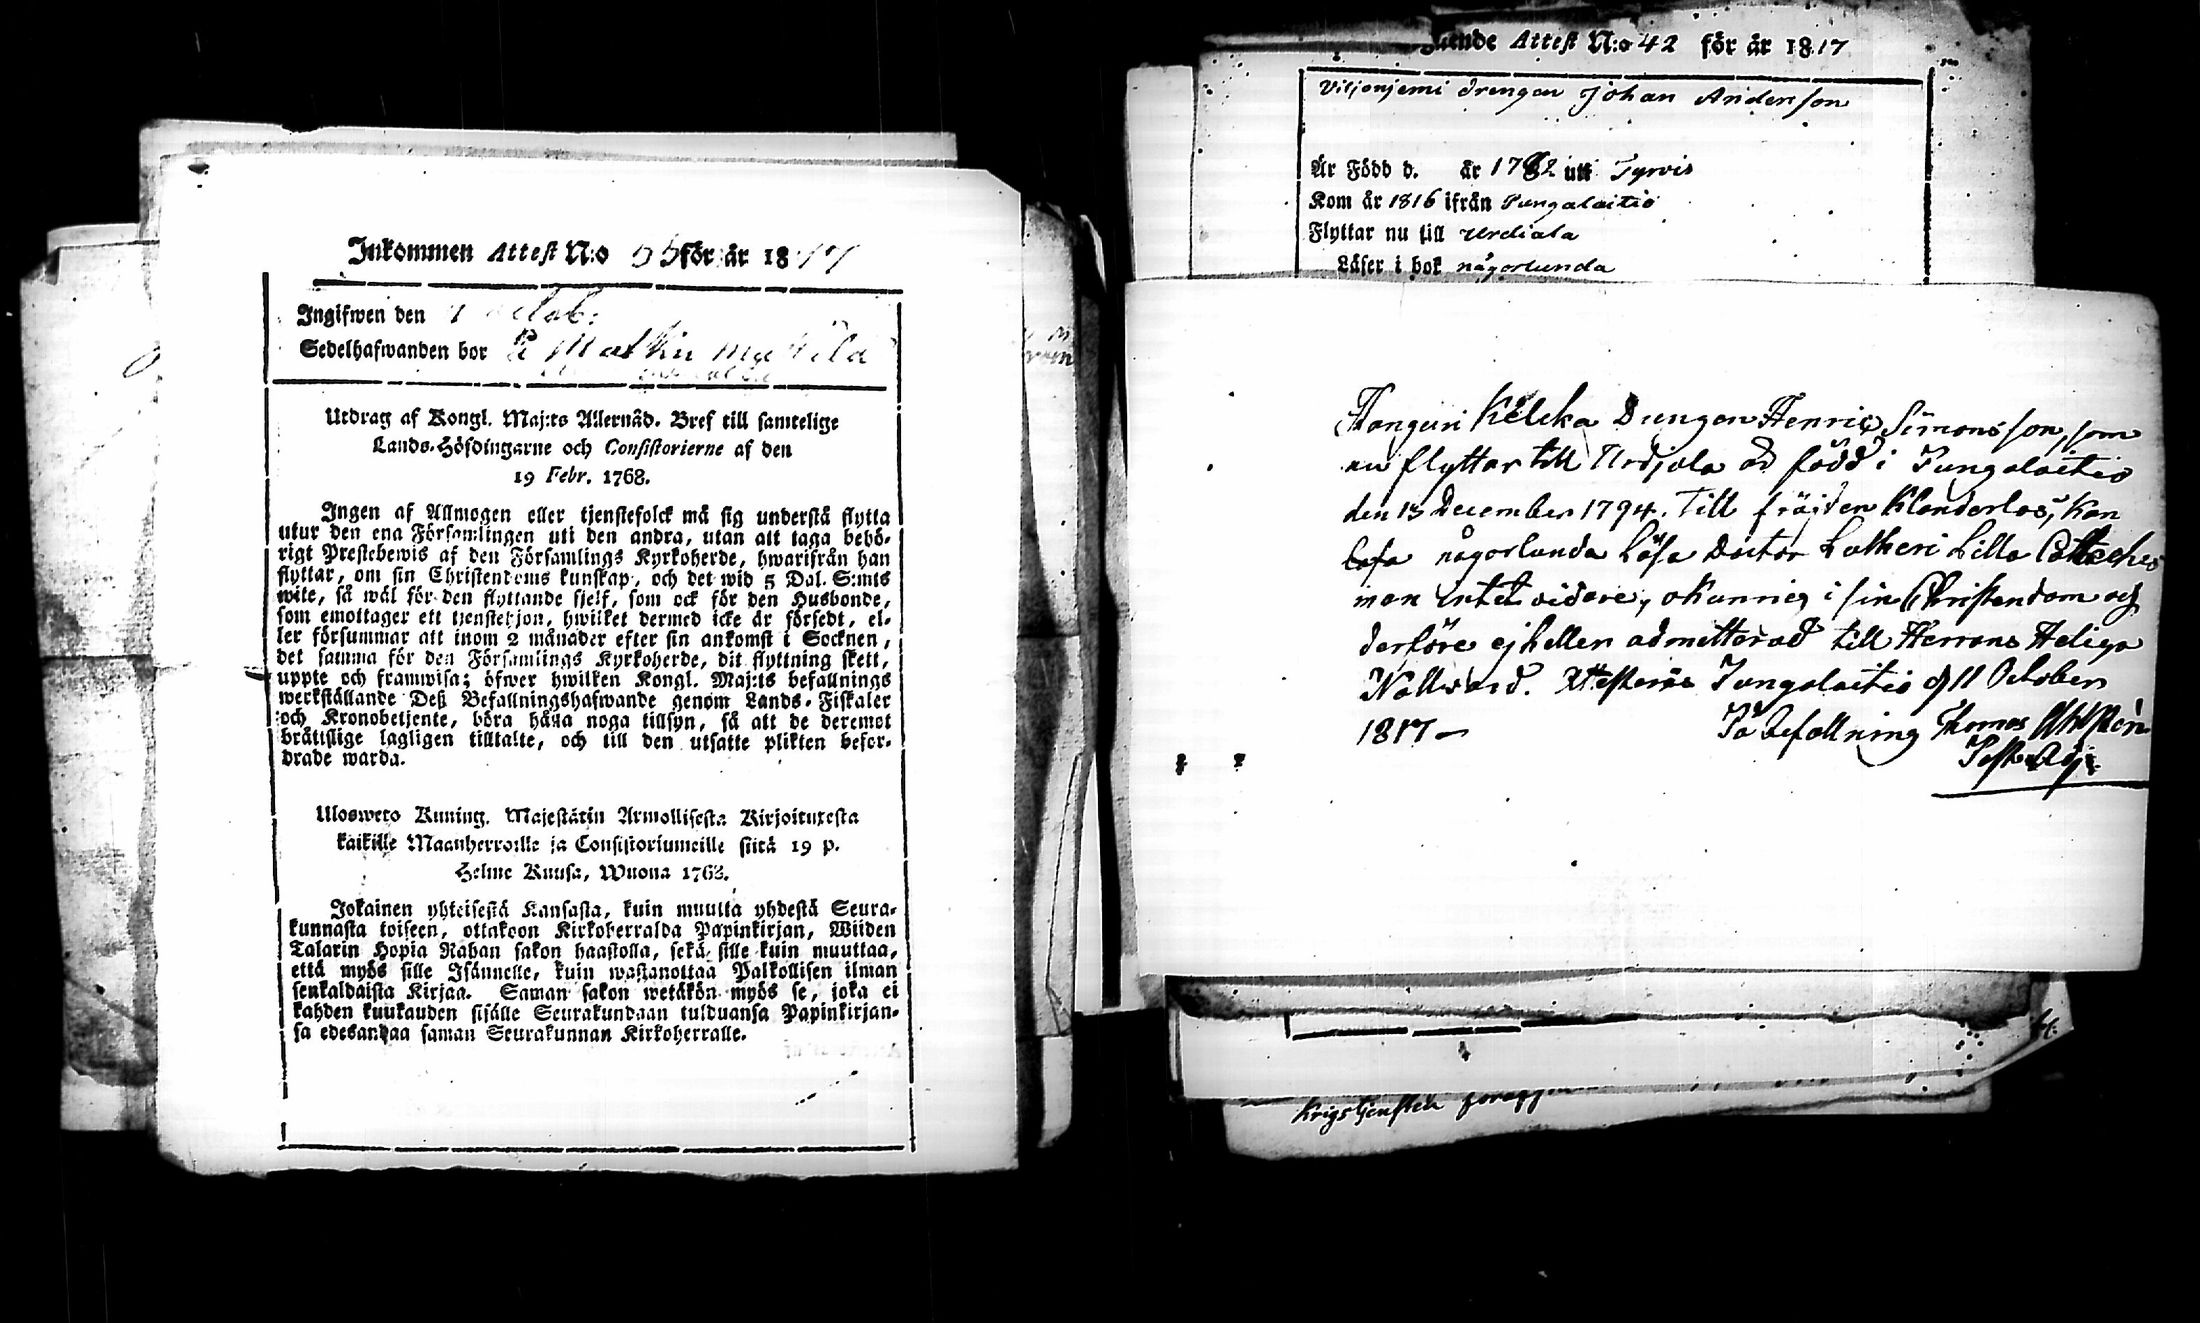 Inkommen Attest N:o 55 för år 1817
Ingifwen den
Sedelhafwanden bor
Utdrag af Kongl. Maj:ts Allernåd. Bref till samtelige
Lands-Höfdingarne och Consistorierne af den
19 Febr. 1768.
Ingen af Allmogen eller tjenstefolck må sig understå flytta
utur den ena Församlingen uti den andra, utan att taga behö-
rigt Prestebewis af den Församlings Kyrkoherde, hwarifrån han
flyttar, om sin Christendoms kunskap, och det wid 5 Dal. S:mts
wite, så wäl för den flyttande sjelf, som ock för den Husbonde,
som emottager ett tjenstehjon, hwilket dermed icke är försedt, el-
ler försummar att inom 2 månader efter sin ankomst i Socknen,
det samma för den Församlings Kyrkoherde, dit flyttning skett,
uppte och framwisa; öfwer hwilken Kongl. Maj:ts befallnings
werkställande Deß Befallningshafwande genom Lands-Fiskaler
och Kronobetjente, böra hålla noga tillsyn, så att de deremot
bråttslige lagligen tilltalte, och till den utsatte plikten befor-
drade warda.
Ulosweto Kuning. Majestätin Armollisesta Kirjoituxesta
kaikille Maanherroille ja Consistoriumeille siitä 19 p.
Helme Kuusa, Wuona 1768.
Jokainen yhteisestä Kansasta, kuin muutta yhdestä Seura-
kunnasta toiseen, ottakoon Kirkoherralda Papinkirjan, Wiiden
Talarin Hopia Rahan sakon haastolla, sekä sille kuin muuttaa,
että myös sille Isännelle, kuin wastanottaa Palkollisen ilman
senkaldaista Kirjaa. Saman sakon wetäkön myös se, joka ei
kahden kuukauden sisälle Seurakundaan tulduansa Papinkirjan-
sa edesandaa saman Seurakunnan Kirkoherralle.
Attest N:o 42 för år 1817
drengen Johan Anderson
Är Född d. år 1782 uti Tyrvis
Kom år 1816 ifrån Pungalaitio
Flyttar nu till Urdiala
Läser i bok någorlunda
Drengen Henric Simonsson, som
nu flyttar till Urdjala är född i Pungalaitio
den 13 December 1794. Till fräjden Klanderlos, kan
någorlunda läsa Doctor Lutheri Lilla Catheches
men intet vidare, okunnig i sin Christendom och
derföre ej heller admitterad till Herrans Heliga
Nattvard. Attesteras Pungalaitio d 11 October
1817 På befallning Thomas
Krigstjensten